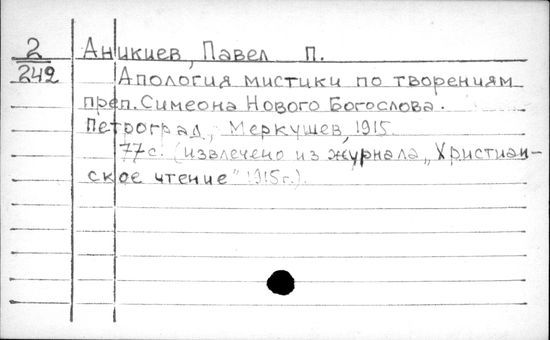 2 Аникиев, Павел П.
242 Апология мистики по творениям
преп. Симеона Нового Богослова.
Петроград, Меркушев, 1915.
77 с. (извлечено из журнала „Христиан-
ское чтение" 1915 г.).